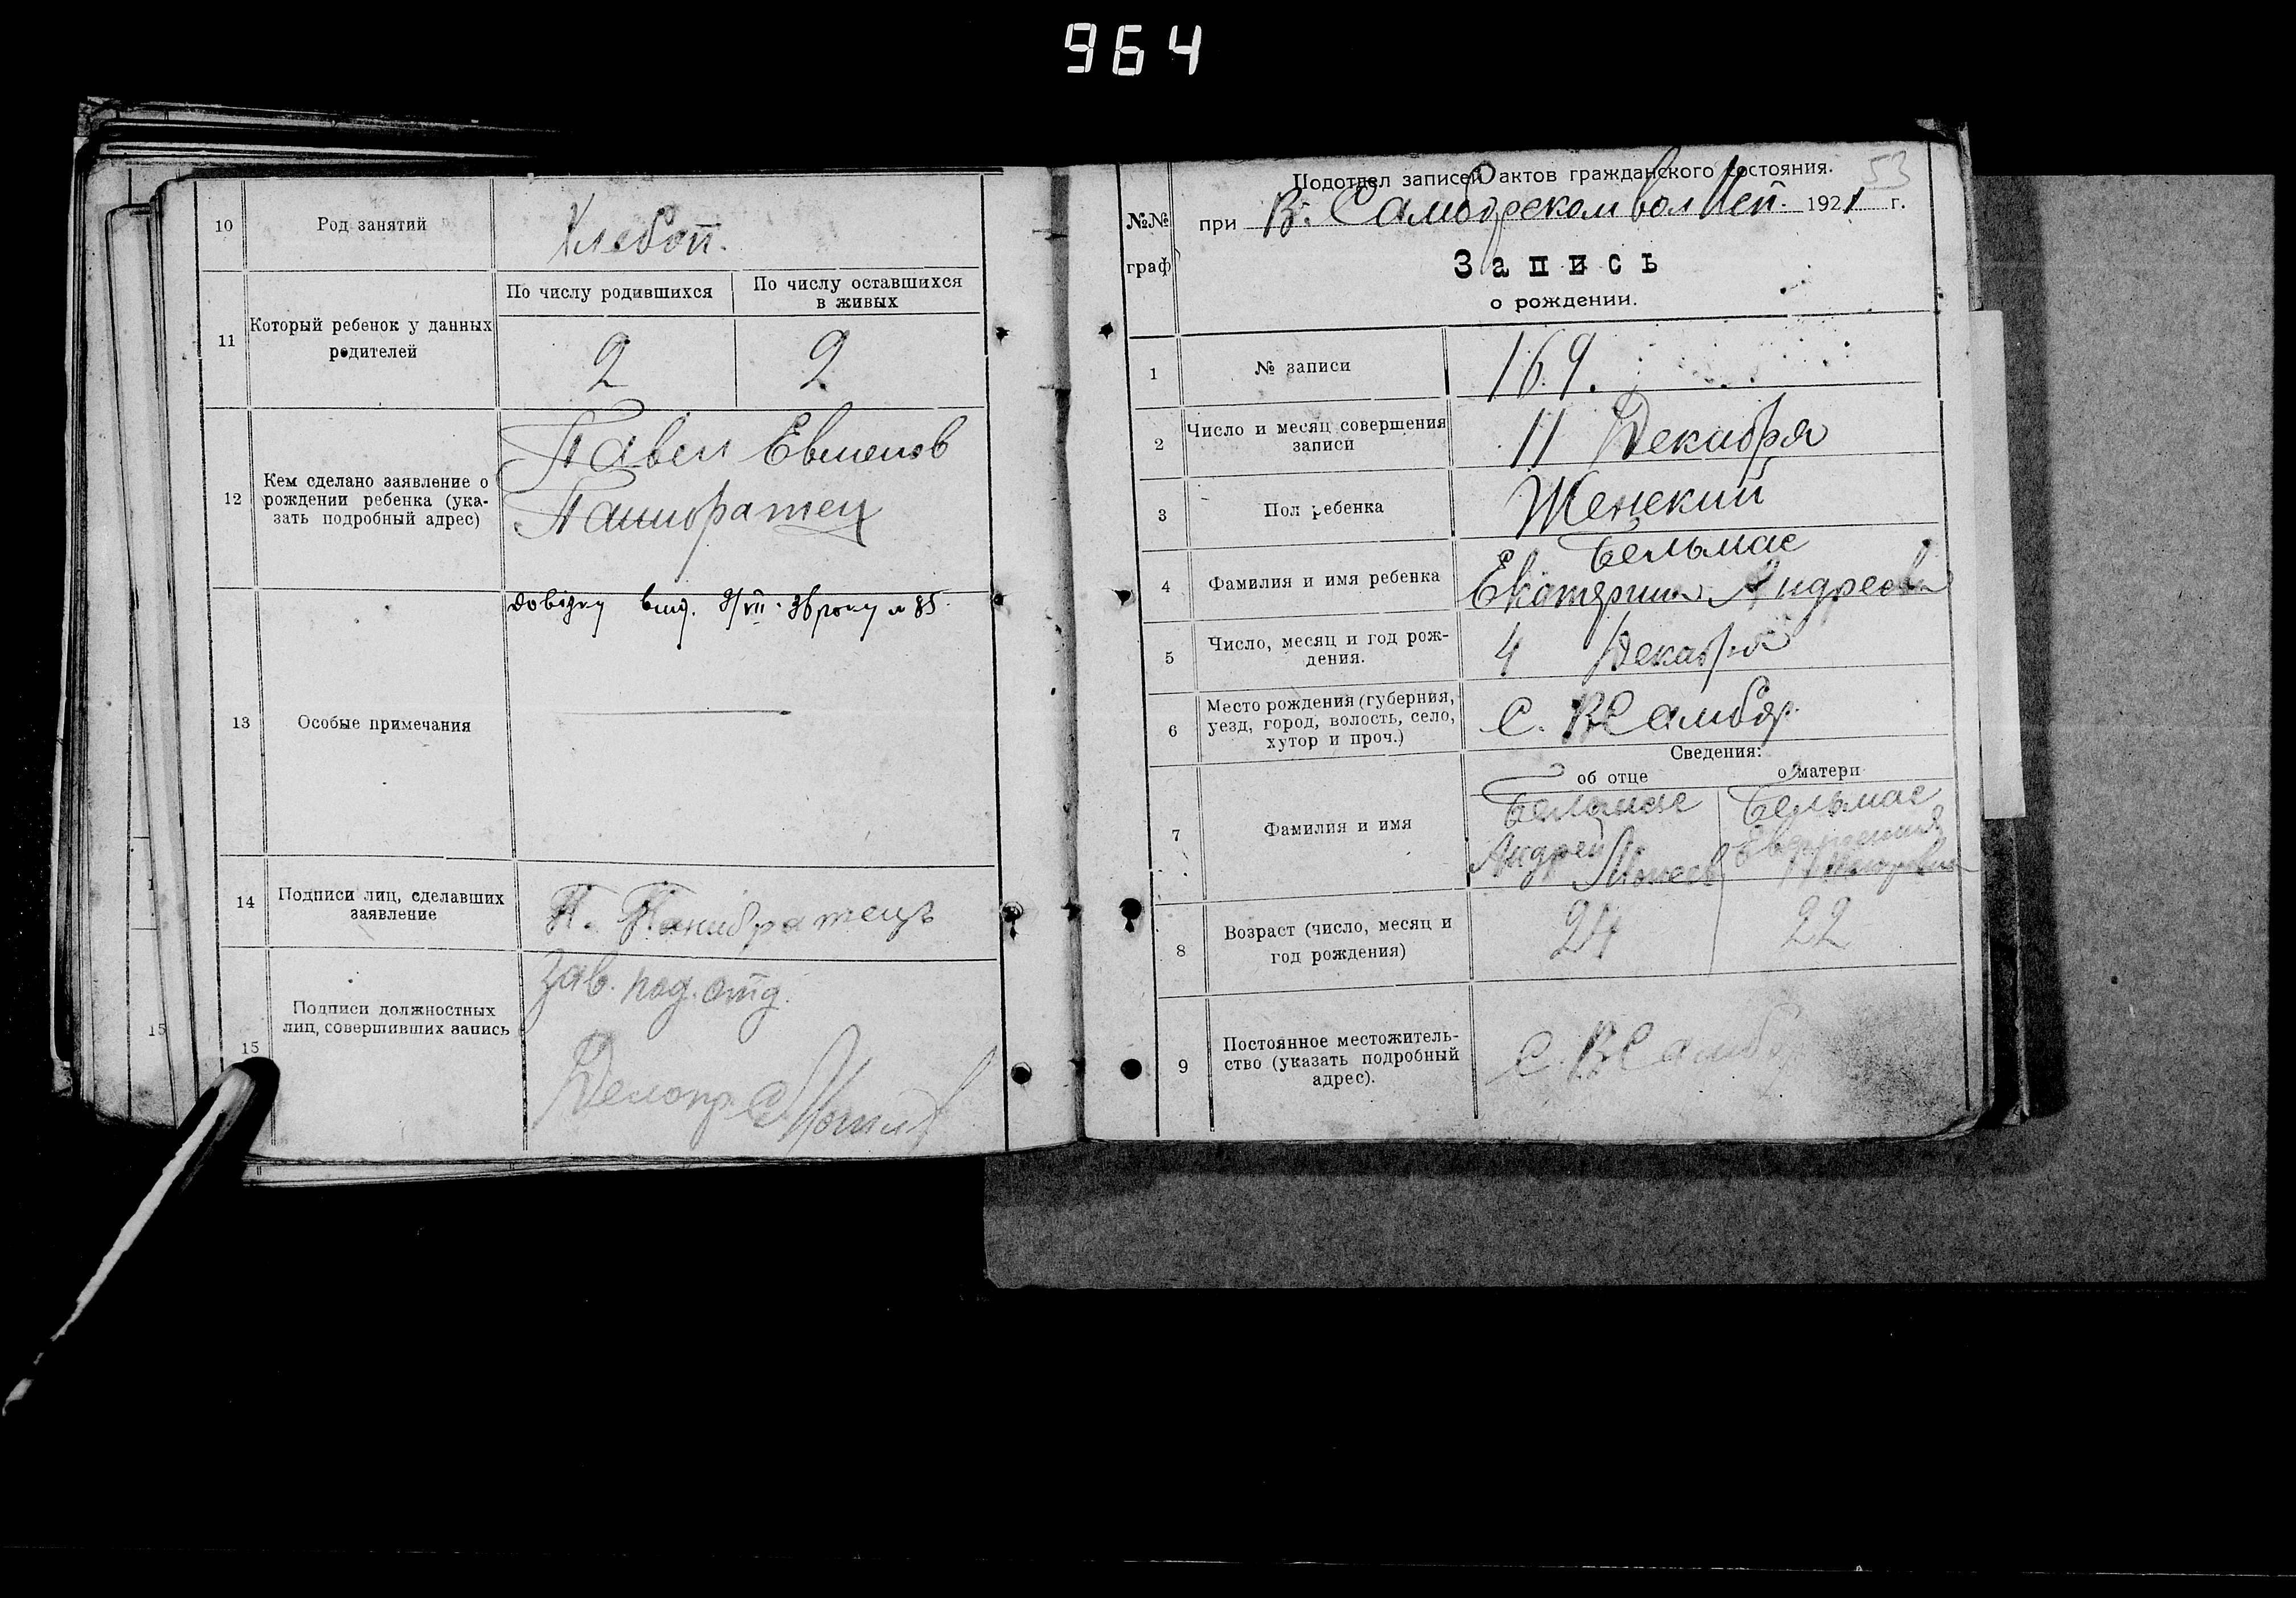 964
10 Род занятий Хлебоп.
11 Который ребенок у данных родителей
По числу родившихся
По числу оставшихся
в живых
2 2
12 Кем сделано заявление о
рождении ребенка (ука-
зать подробный адрес)
Павел Евменов
13 Особые примечания
довідку вид. 9/VII 36 року № 85
14 Подписи лиц, сделавших
заявление
П. Панибратець
15 Подписи должностных
лиц, совершивших запись
Зав. под. отд.
Делопр.
53
Подотдел записей актов гражданского состояния.
№№ граф
при В. Самборском вол 1921 г.
Запись
о рождении.
1 № записи 169.
2 Число и месяц совершения
записи
11 Декабря
3 Пол ребенка Женский
4 Фамилия и имя ребенка
Бельмас
Екатерина Андреевна
5 Число, месяц и год рож-
дения.
4 Декабря
6 Место рождения (губерния,
уезд, город, волость, село,
хутор и проч.)
с. В Самбор
Сведения:
об отце о матери
7 Фамилия и имя
Бельмас Бельмас
Андрей
8 Возраст (число, месяц и
год рождения)
24 22
9 Постоянное местожитель-
ство (указать подробный
адрес).
с. В Самбор